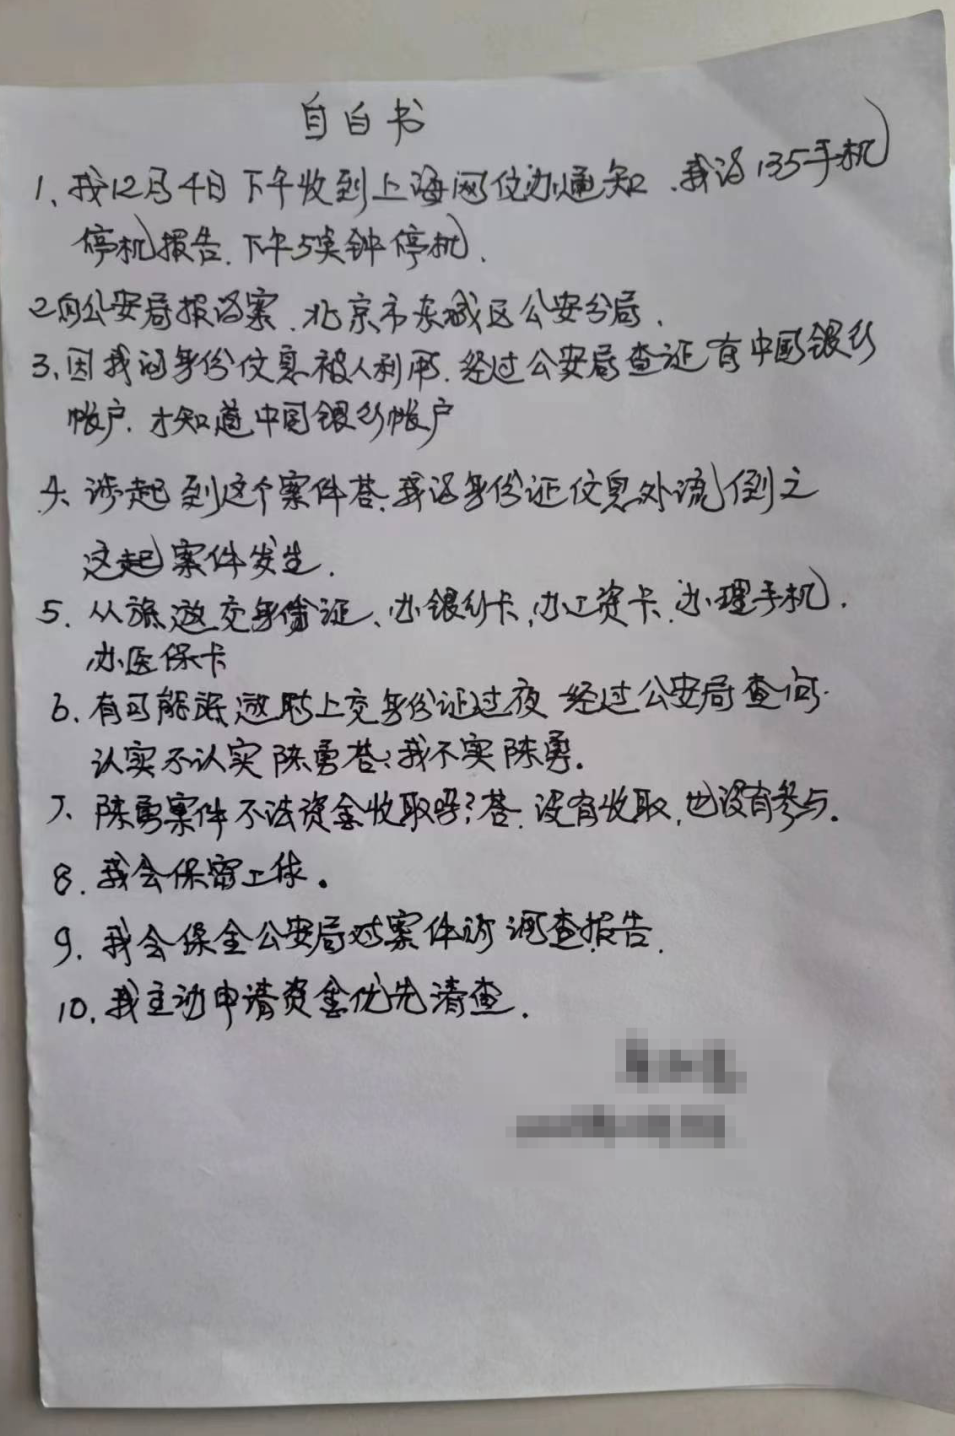 自白书
1、我12月4日下午收到上海网信办通知、我的135手机
停机报告、下午5点钟停机、
2向公安局报的案、北京市东城区公安分局、
3、因我的身份信息被人利用、经过公安局查证有中国银行
帐户、才知道中国银行帐户
4、涉起到这个案件答、我的身份证信息外流倒之
这起案件发生.
5. 从旅游交身份证、办银行卡、办工资卡、办理手机.
办医保卡
6、有可能旅游时上交身份证过夜 经过公安局查问.
认实不认实陈勇答:我不实陈勇。
7、陈勇案件不法资金收取吗?答、没有收取,也没有参与。
8、我会保留上传。
9、我会保全公安局对案件的调查报告.
10、我主动申请资金优先清查.